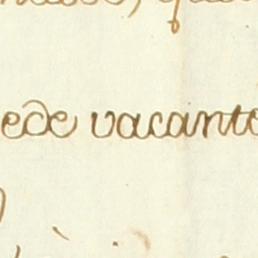 ede vacante